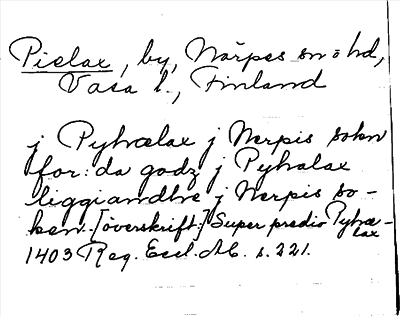 Pielax, by, Närpes sn o hd,
Vasa l., Finland
j Pyhælax j Nerpis sokn
for: da godz j Pyhalax
liggiandhe j Nerpis so-
ken. [överskrift:] Super predio Pyhæ-
lax
1403 Reg. Eccl. Ab. s. 221.